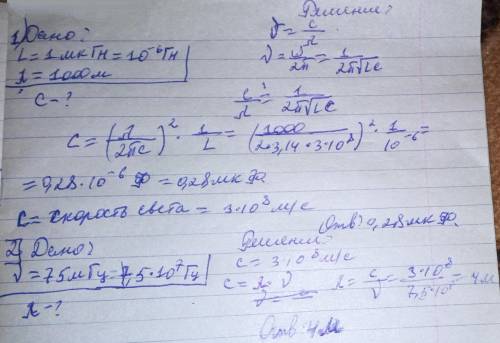 Решение:
1) Дано:
L = 1 мкГн = 10⁻⁶ Гн
λ = 1000 м
C - ?
ν = c/λ
ν = ω/2π = 1/2π√LC
c/λ = 1/2π√LC
C = (λ/2πc)² · 1/L = (1000/2·3,14·3·10⁸)² · 1/10⁻⁶ =
= 0,28·10⁻⁶ Ф = 0,28 мкФ.
c = скорость света = 3·10⁸ м/с
Отв: 0,28 мкФ.
2) Дано:
ν = 75 мГц = 7,5·10⁷ Гц
λ - ?
Решение:
c = 3·10⁸ м/с
c = λ·ν λ = c/ν = 3·10⁸/7,5·10⁷ = 4 м
Отв: 4 м